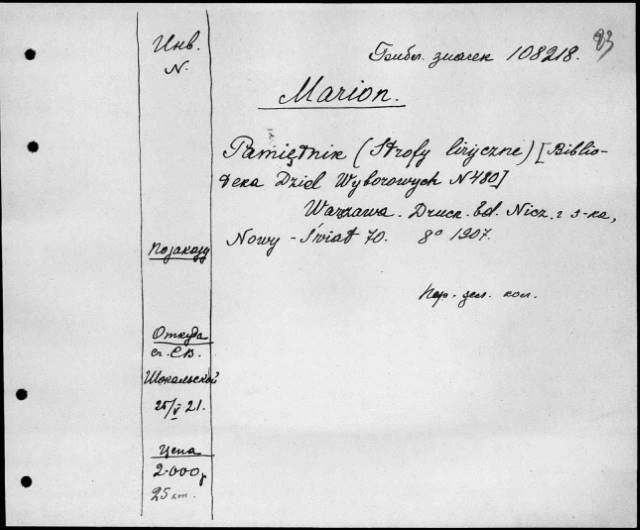 83
Инв.
N.
Библ. значек 108218.
Marion.
Pamiętnik (Strofy liryczne) [Biblio-
teka Dzieł Wyborowych N 480]
Warszawa. Druk. Ed. Nicz. i S-ka,
Nowy-Świat 70. 8° 1907.
По заказу
пер. зел. кол.
Откуда
от С.В.
Шокальской
25/V 21.
Цена
2.000 р
25 кт.